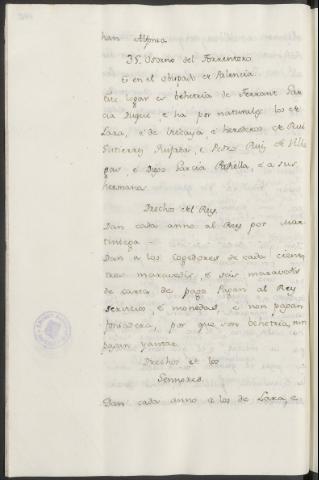 han Alfonso
35. Osorno del Torrentero
Es en el obispado de Palencia.
Este logar es behetria de Ferrant Gar
cia Duque, e ha por naturales los de
Lara, e de Vizcaya, e herederos de Rui
Gutierrez, e Pedro Ruiz de Ville
gas, e Diego Garcia, e a sus
hermana.
Drechos del Rey.
Dan cada anno al Rey por mar
tiniega -
Dan a los Cogedores de cada ciento
tres maravedis, e seis maravedis
de carta de pago. Pagan al Rey
servicios e monedas, e non pagan
fonsadera, por que son behetria, nin
pagan yantar.
Drechos de los
Sennores.
Dan cada anno a los de Lara, e